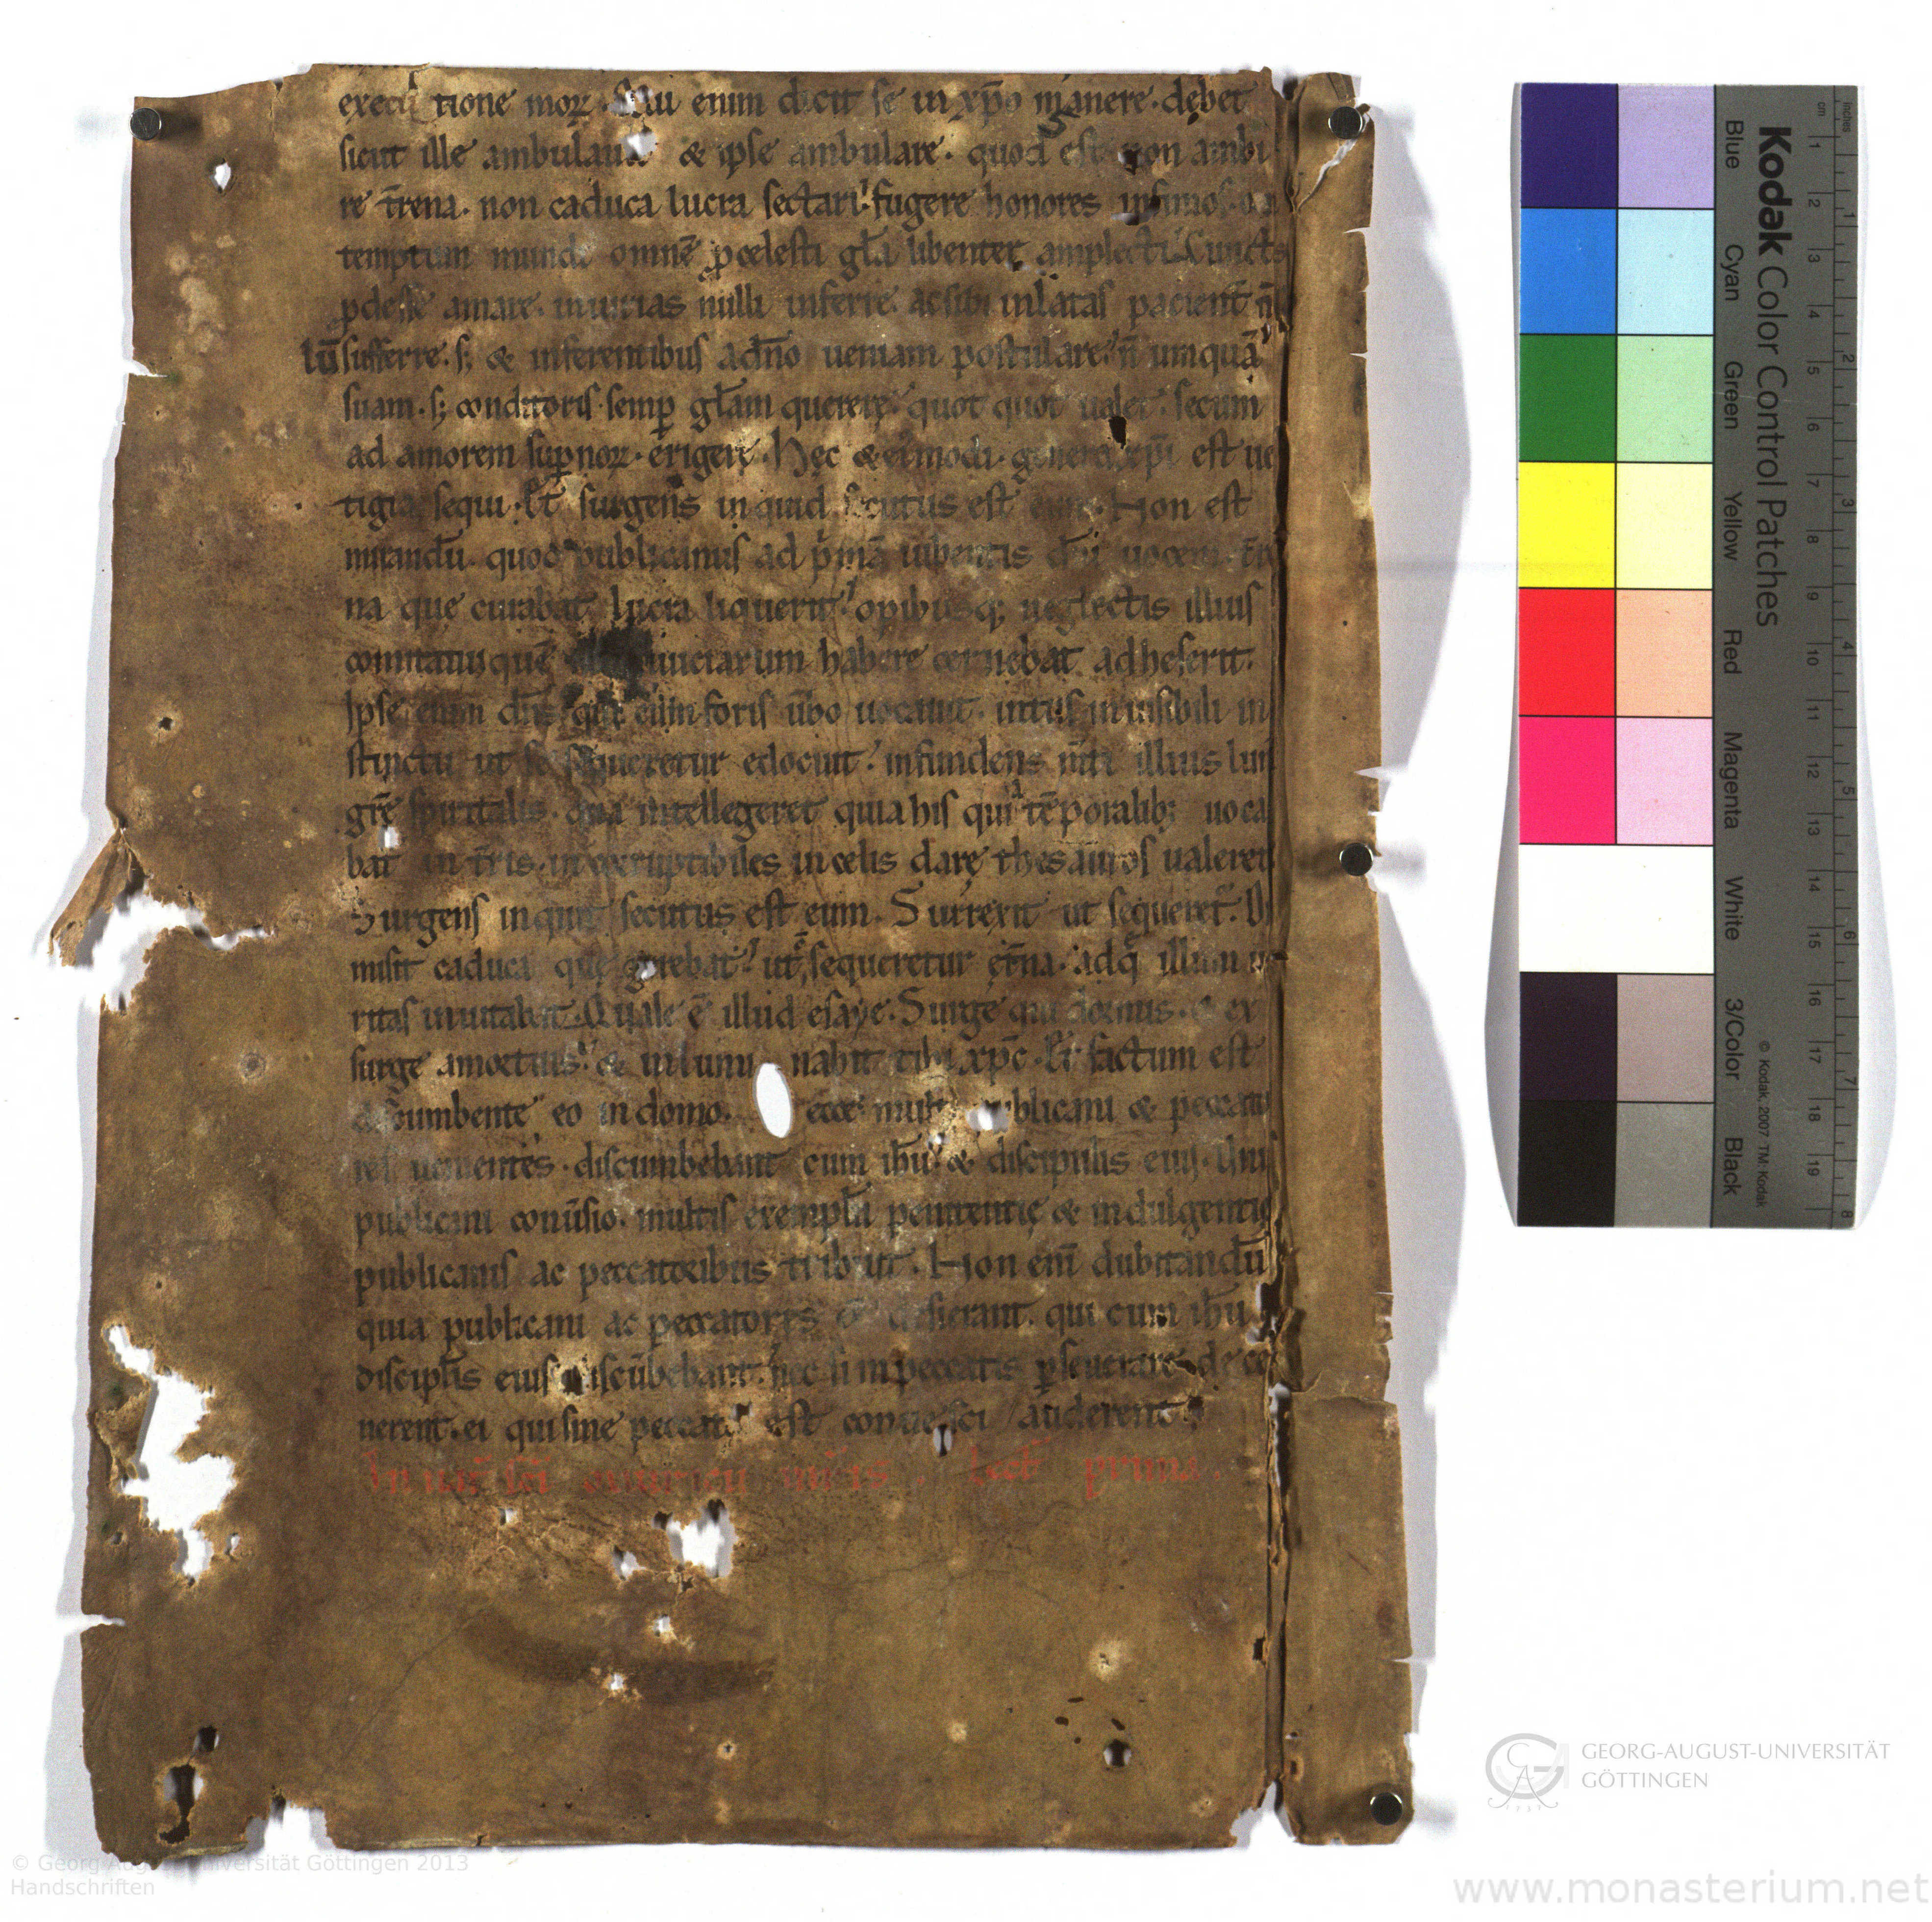 execu tione moꝝ. Qui enim dicit se in xp̄o manere. debet
sicut ille ambulauit & ipse ambulare. quod est non ambi
re t̄rena. non caduca lucra sectari. fugere honores infimos.
temptum mundi omnē ꝓ celesti gl̄a libenter amplecti. Cunctis
ꝓdesse amare. iniurias nulli inferre. ac sibi inlatas pacient̄
sufferre. s; & inferentibus a dn̄o ueniam postulare. n̄ umquā
suam. s; conditoris semꝑ gl̄am querere. quot quot ualet. secum
ad amorem suꝑnoꝝ. erigere. Hęc & ei᷒modi. genera xp̄i est ue
tigia sequi. Et surgens inquid secutus est eum. Non est
mirandū. quod publicanus ad p̄mā iubentis dn̄i uocem. t̄re
na que curabat lucra liquerit. opibusq; neglectis illius
comitatui quē diuiciarum habere cernebat adheserit.
Ipse enim dn̄s qui eum foris ūbo uocauit. intus inuisibili in
stinctu ut se sequeretur edocuit. infundens m̄ti illius lum
grē spiritalis. qua intellegeret quia his qui a tēporalib; uoca
bat in t̄ris. incorruptibiles in celis dare thesauros ualeret
Surgens inquit secutus est eum. Surrexit ut sequeret᷑. Di
misit caduca que gerebat. ut sequeretur et̄na. ad q̄ illum ue
ritas inuitabat. Quale ē illud esaye. Surge qui dormis. & ex
surge a mortuis. & inlumi nabit tibi xp̄c. Et factum est
discumbente eo in domo. ecce multi publicani & peccato
res uenientes. discumbebant cum ih̄u & discipulis eius. Uni᷒
publicani conūsio. multis exempla penitentię & indulgentię
publicanis ac peccatoribus tribuit. Non enī dubitandū
quia publicani ac peccatores desierant. qui cum ih̄u
discipl̄is eius discūbebant. nec si in peccatis ꝑseuerare de ce
nerent. ei qui sine peccato est conuesci auderent.
In nat̄ sc̄i mauricii m̄ris. Lect̄ prima.
Kodak Color Control Patches
Blue Cyan Green Yellow Red Magenta White 3/Color Black
© Kodak, 2007 TM: Kodak
inches 1 2 3 4 5 6 7 8
cm 1 2 3 4 5 6 7 8 9 10 11 12 13 14 15 16 17 18 19
GEORG-AUGUST-UNIVERSITÄT
GÖTTINGEN
© Georg-August-Universität Göttingen 2013
Handschriften
www.monasterium.net